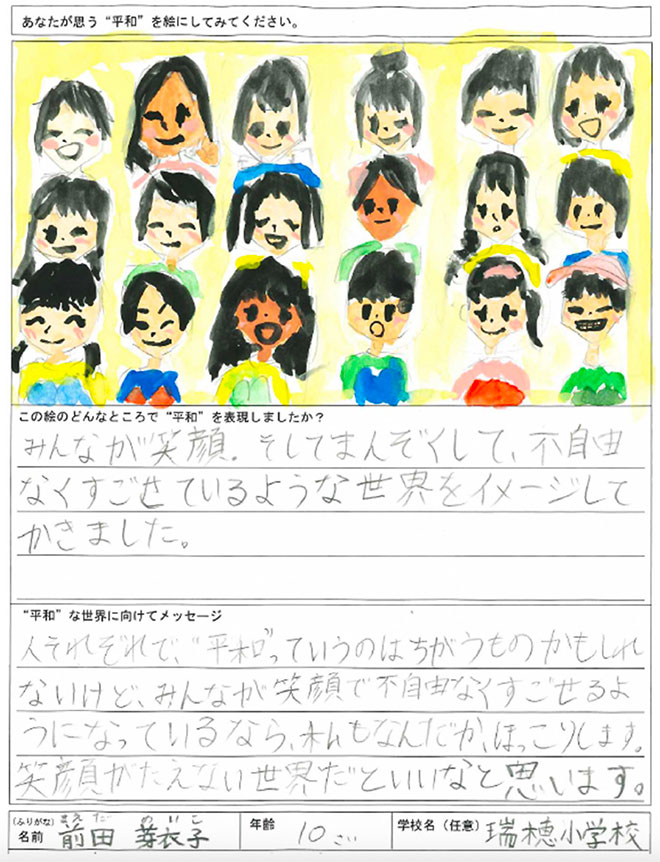 あなたが思う“平和”を絵にしてみてください。
この絵のどんなところで“平和”を表現しましたか？
みんなが笑顔。そしてまんぞくして、不自由
なくすごせているような世界をイメージして
かきました。
“平和”な世界に向けてメッセージ
人それぞれで、“平和”っていうのはちがうものかもしれ
ないけど、みんなが笑顔で不自由なくすごせるよ
うになっているなら、私もなんだか、ほっこりします。
笑顔がたえない世界だといいなと思います。
(ふりがな) まえだ めいこ
名前 前田 芽衣子 年齢 10さい 学校名（任意） 瑞穂小学校